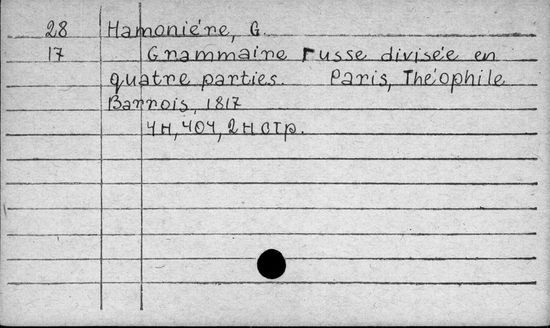 28 Hamoniére, G.
17 Grammaire russe divisée en
quatre parties. Paris, Théophile
Barrois, 1817
4н, 404, 2н стр.